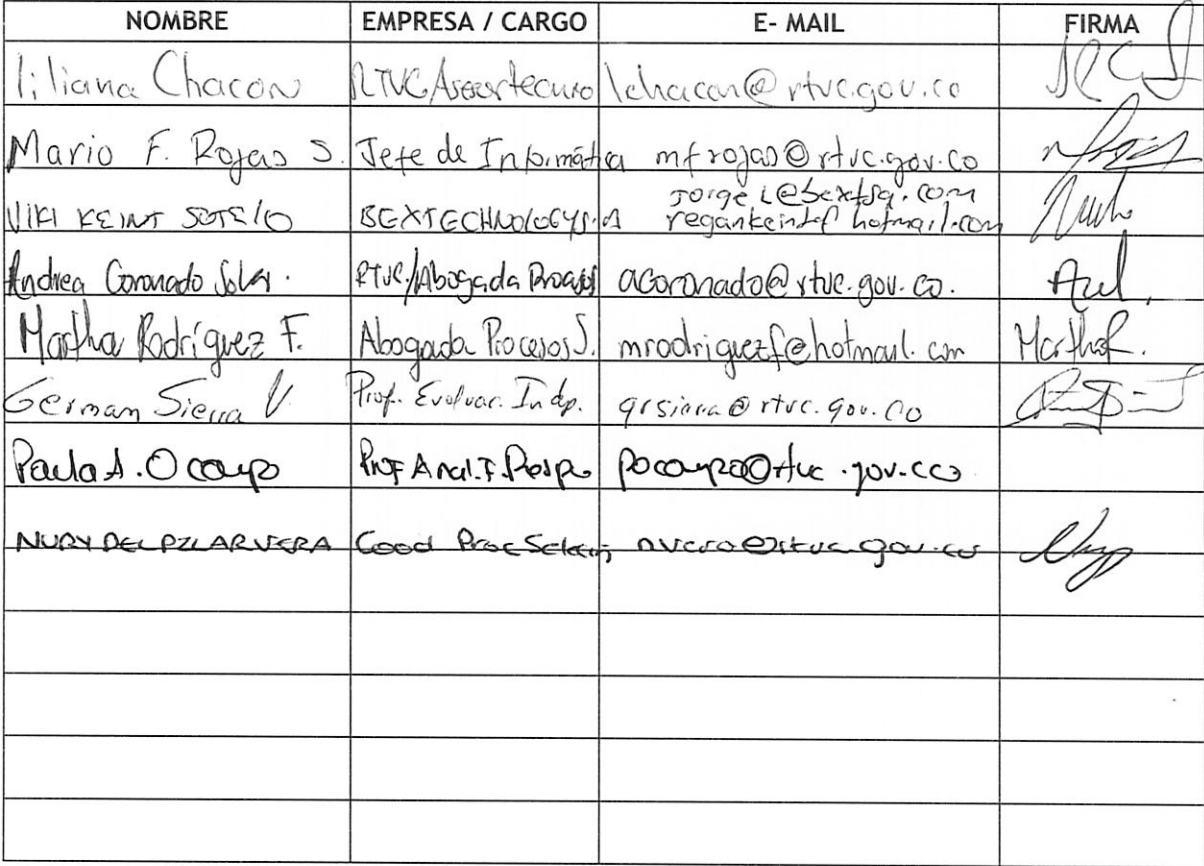 NOMBRE EMPRESA / CARGO E- MAIL FIRMA
Liliana Chacon RTVC/Asesor tecnico lchacon@rtvc.gov.co
Mario F. Rojas S. Jefe de Informática mfrojas@rtvc.gov.co
VIKI KEINT SOTELO BEXTECHNOLOGY S.A
Andrea Coronado Soler. RTVC/Abogada Procesos acoronado@rtvc.gov.co.
Martha Rodríguez F. Abogada Procesos S. mrodriguezf@hotmail.com MarthaR.
German Sierra V. Prof. Evaluac. Indp. grsierra@rtvc.gov.co
Paula A. Ocampo Prof Anal. F. pocampo@rtvc.gov.co
NURY DEL PILAR VERA Coord Proc Selecc nvera@rtvc.gov.co